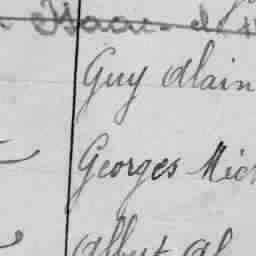 Isaac
Guy Alain
Georges Mich
Albert Al